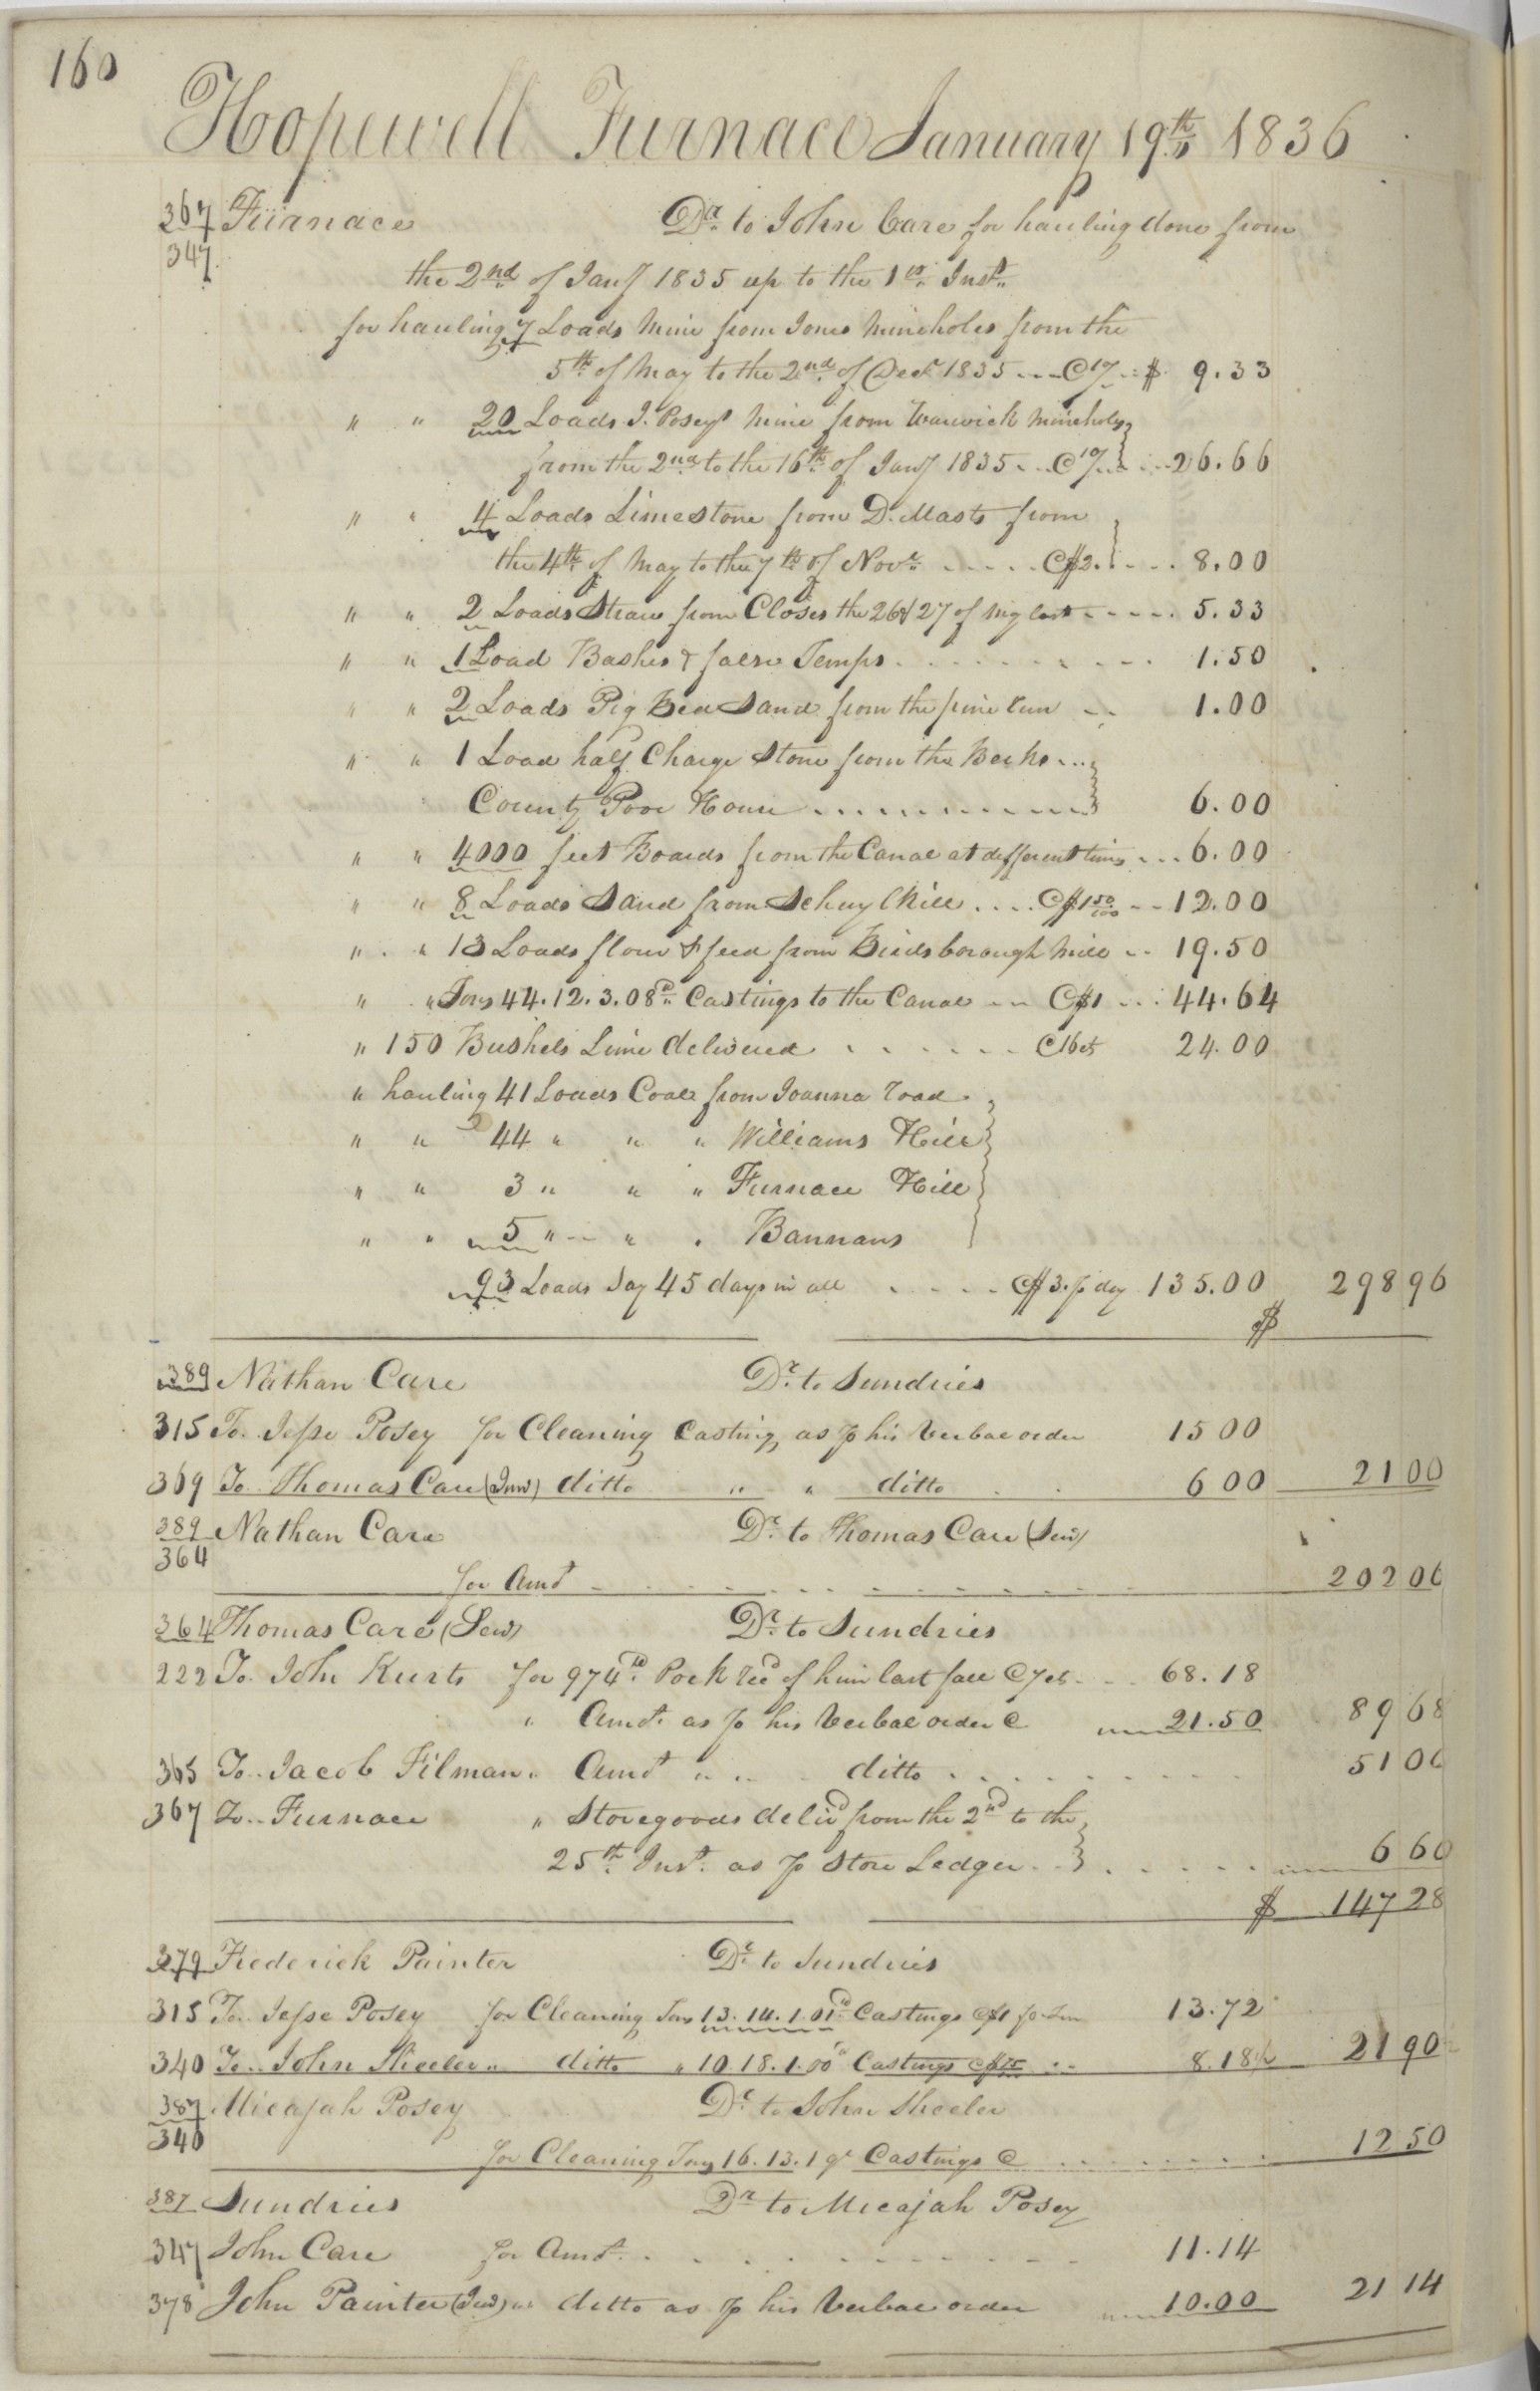 160
Hopewell Furnace January 19th 1836
367 Furnace Dr. to John Care for hauling done from
347.
the 2nd of Jany 1835 up to the 1st Inst.
for hauling 7 Loads Mine from Jones Mineholes from the
5th of May to the 2nd of Decr 1835 @ 10/ $ 9.33
" " 20 Loads J. Posey's Mine from Warwick Mineholes
from the 2nd to the 16th of Jany 1835 @ 10/ 26.66
" " 4 Loads Limestone from D. Masts from
the 4th of May to the 7th of Novr. @ $2. 8.00
" " 2 Loads Straw from Closes the 26 & 27 of Aug last 5.33
" " 1 Load Bashes & Temps 1.50
" " 2 Loads Pig Bed Sand from the pine run 1.00
" " 1 Load half Charge Stone from the Berks
County Poor House 6.00
" " 4000 feet Boards from the Canal at different times 6.00
" " 8 Loads Sand from Schuylkill @ $1 50/100 12.00
" " 13 Loads flour & feed from Birdsborough Mill 19.50
" " Tons 44.12.3.08 lb Castings to the Canal @ $1 44.64
" 150 Bushels Lime delivered @ 16 cts 24.00
" hauling 41 Loads Coal from Joanna road
" " 44 " " " Williams Hill
" " 3 " " " Furnace Hill
" " 5 " " " Bannans
93 Loads Say 45 days in all @ $3. p day 135.00 298 96
$
389 Nathan Care Dr. to Sundries
315 To Jesse Posey for Cleaning Casting, as p his Verbal order 15 00
369 To Thomas Care (Junr) ditto " " ditto 6 00 21 00
389 Nathan Care Dr. to Thomas Care (Senr)
364
for Amt 202 06
364 Thomas Care (Senr) Dr. to Sundries
222 To John Kurts for 974 lb Pork recd of him last fall @ 7 cts 68.18
" Amt. as p his Verbal order @ 21.50 89 68
365 To Jacob Filman " Amt " " ditto 51 00
367 To Furnace " Storegoods delivd from the 2nd to the
25th Inst. as p Store Ledger 6 60
$ 147 28
379 Frederick Painter Dr. to Sundries
315 To Jesse Posey for Cleaning Tons 13.14.1.01 lb Castings @ $1 p Ton 13.72
340 To John Sheeler " ditto " 10.18.1.00 " Castings @ $ 75 8.18 21 90
387 Micajah Posey Dr. to John Sheeler
340
for Cleaning Tons 16.13.1 qr Castings @ 12 50
387 Sundries Dr. to Micajah Posey
347 John Care for Amt. 11.14
378 John Painter (Junr) " ditto as p his Verbal order 10.00 21 14